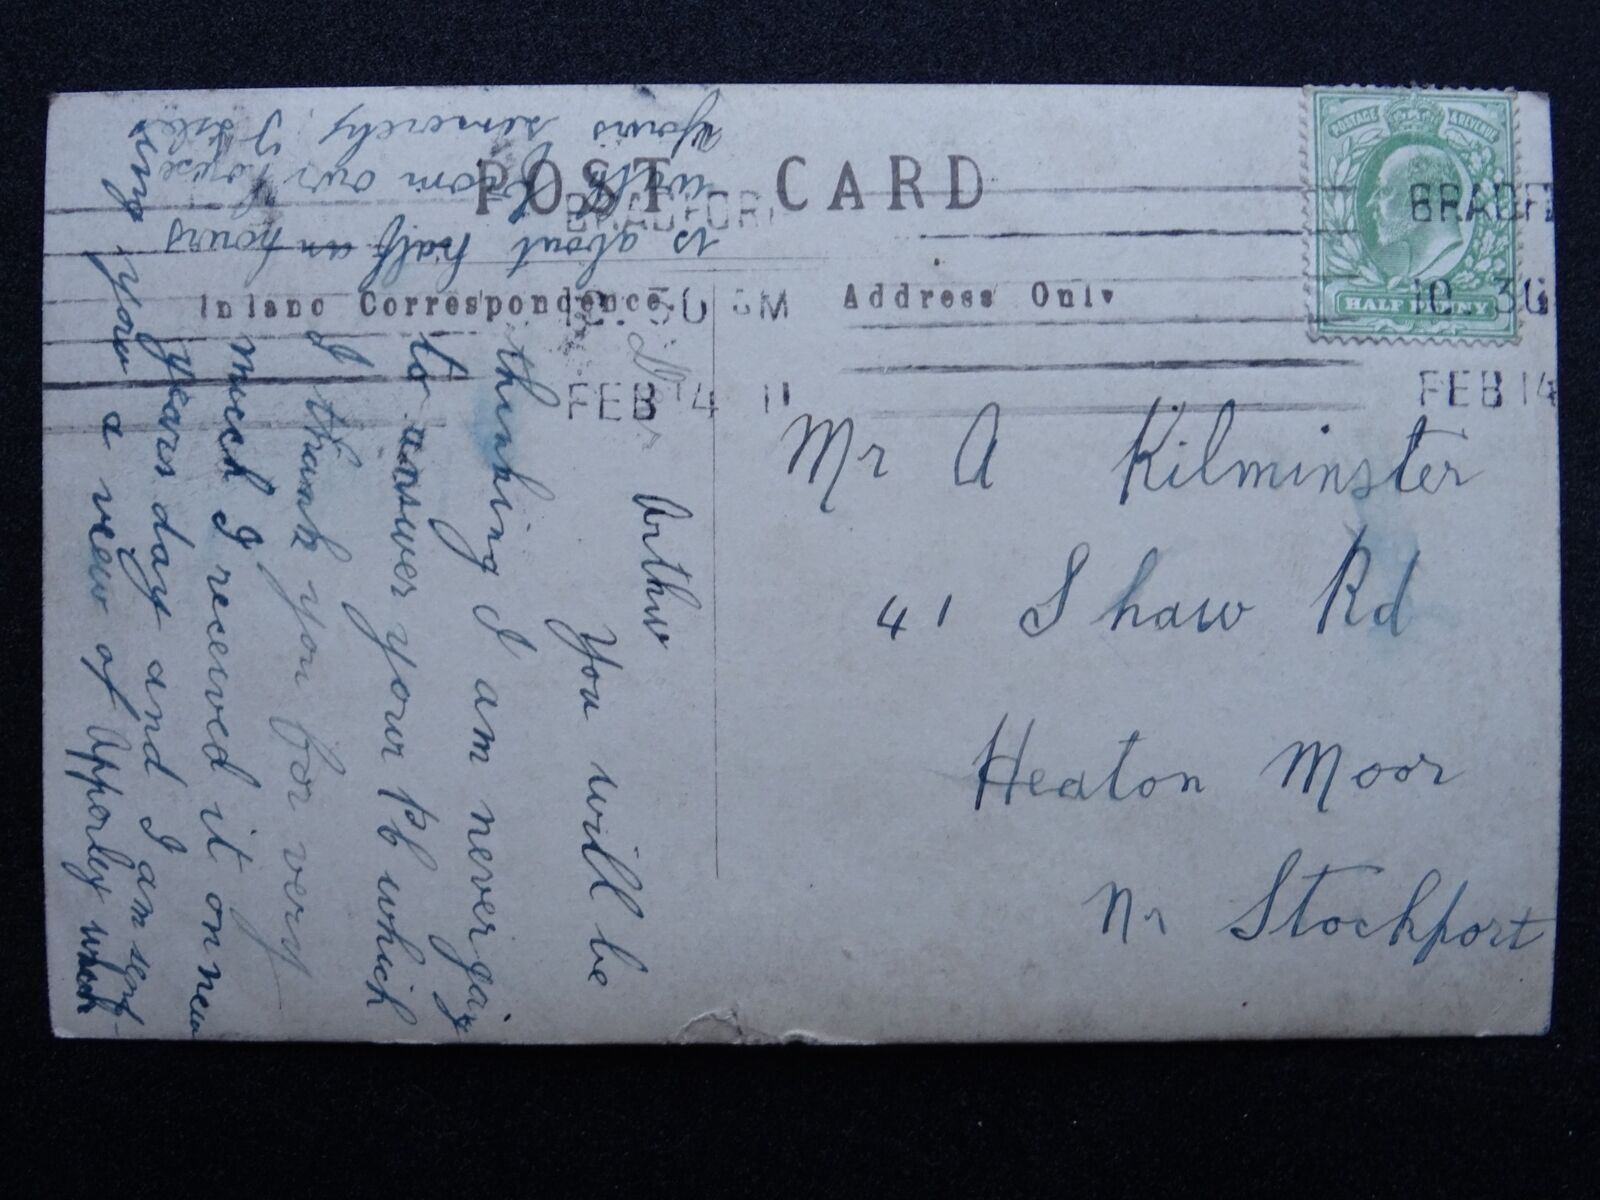 POST CARD
Inland Correspondence.
Address Only
POSTAGE & REVENUE
HALF PENNY
BRADFORD
10.30 PM
FEB 14 11
BRADF
10.30
FEB 14
Mr A Kilminster
41 Shaw Rd
Heaton Moor
Nr Stockport
Dr Arthur
You will be
thinking I am never gaj
to answer your P6 which
I thank you for very
much I received it on new
years day and I am send
ing you a view of Apperley which
is about half an hours
walk from our house
Yours sincerely J